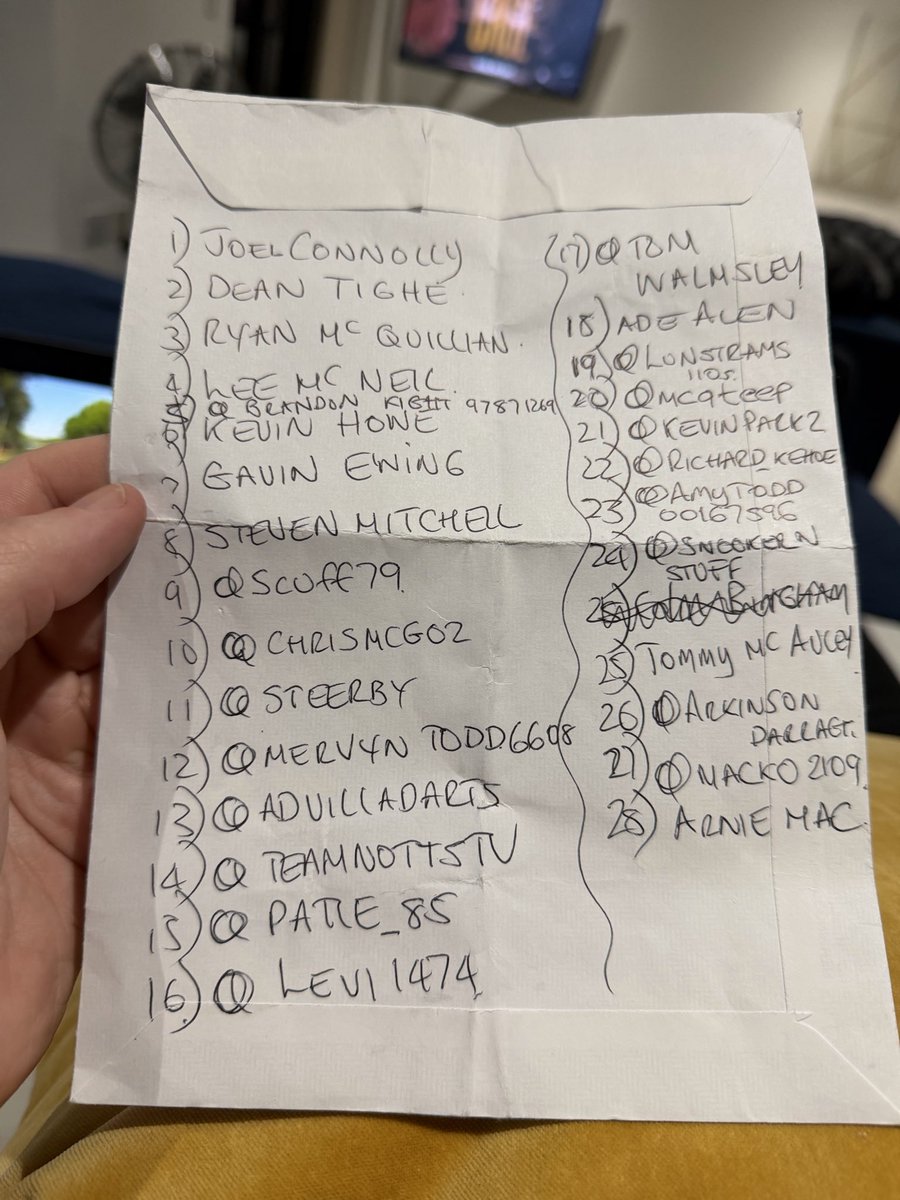 1) JOEL CONNOLLY
2) DEAN TIGHE
3) RYAN MC QUILLIAN.
4) LEE MC NEIL.
5) @ BRANDON 97871269
6) KEVIN HOWE
7) GAVIN EWING
8) STEVEN MITCHELL
9) @SCOFF79
10) @ CHRISMCG02
11) @ STEERBY
12) @MERVYN TODD6608
13) @ ADVILLADARTS
14) @ TEAMNOTTSTV
15) @ PATTE_85
16) @ LEVI1474
17) @ TOM
WALMSLEY
18) ADE ALEN
19) @LONSTRAMS
1105.
20) @mcqteep
21) @KEVINPARK2
22) @RICHARD_KEHOE
23) @AMYTODD
00167596
24) @SNOOKERN
STUFF
25) TOMMY MC AULEY
26) @ARKINSON
DARRAGT.
27) @MACKO 2109
28) ARNIE MAC.